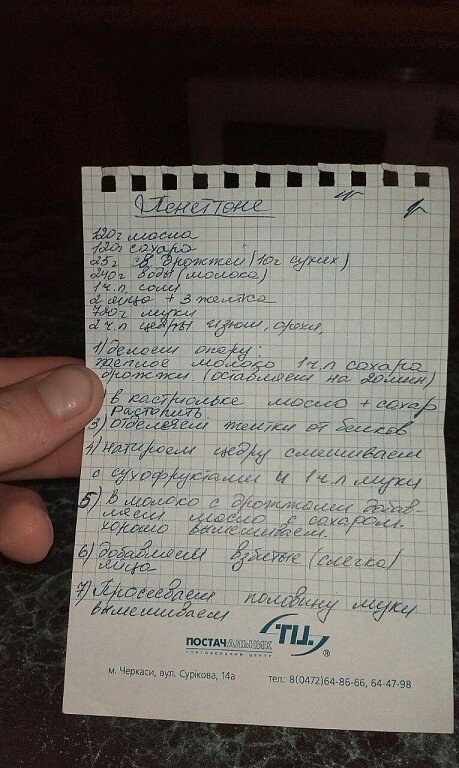 Панеттоне
120г масла
120г сахара
25г дрожжей (10г сухих)
240г воды (молока)
1 ч.л соли
2 яйца + 3 желтка
780г муки
2 ч.л цедры изюм, орехи,
1) делаем опару:
теплое молоко 1 ч.л сахара
дрожжи. (оставляем на 20мин)
в кастрюльке масло + сахар
растопить
3) отделяем желтки от белков
4) натираем цедру смешиваем
с сухофруктами и 1 ч.л муки
5) в молоко с дрожжами добав-
ляем масло с сахаром.
хорошо вымешиваем.
6) добавляем взбитые (слегка)
яйца
7) Просеваем половину муки
вымешиваем
ПОСТАЧАЛЬНИК ТЦ ®
ТОРГОВЕЛЬНИЙ ЦЕНТР
м. Черкаси, вул. Сурікова, 14а тел: 8(0472)64-86-66, 64-47-98